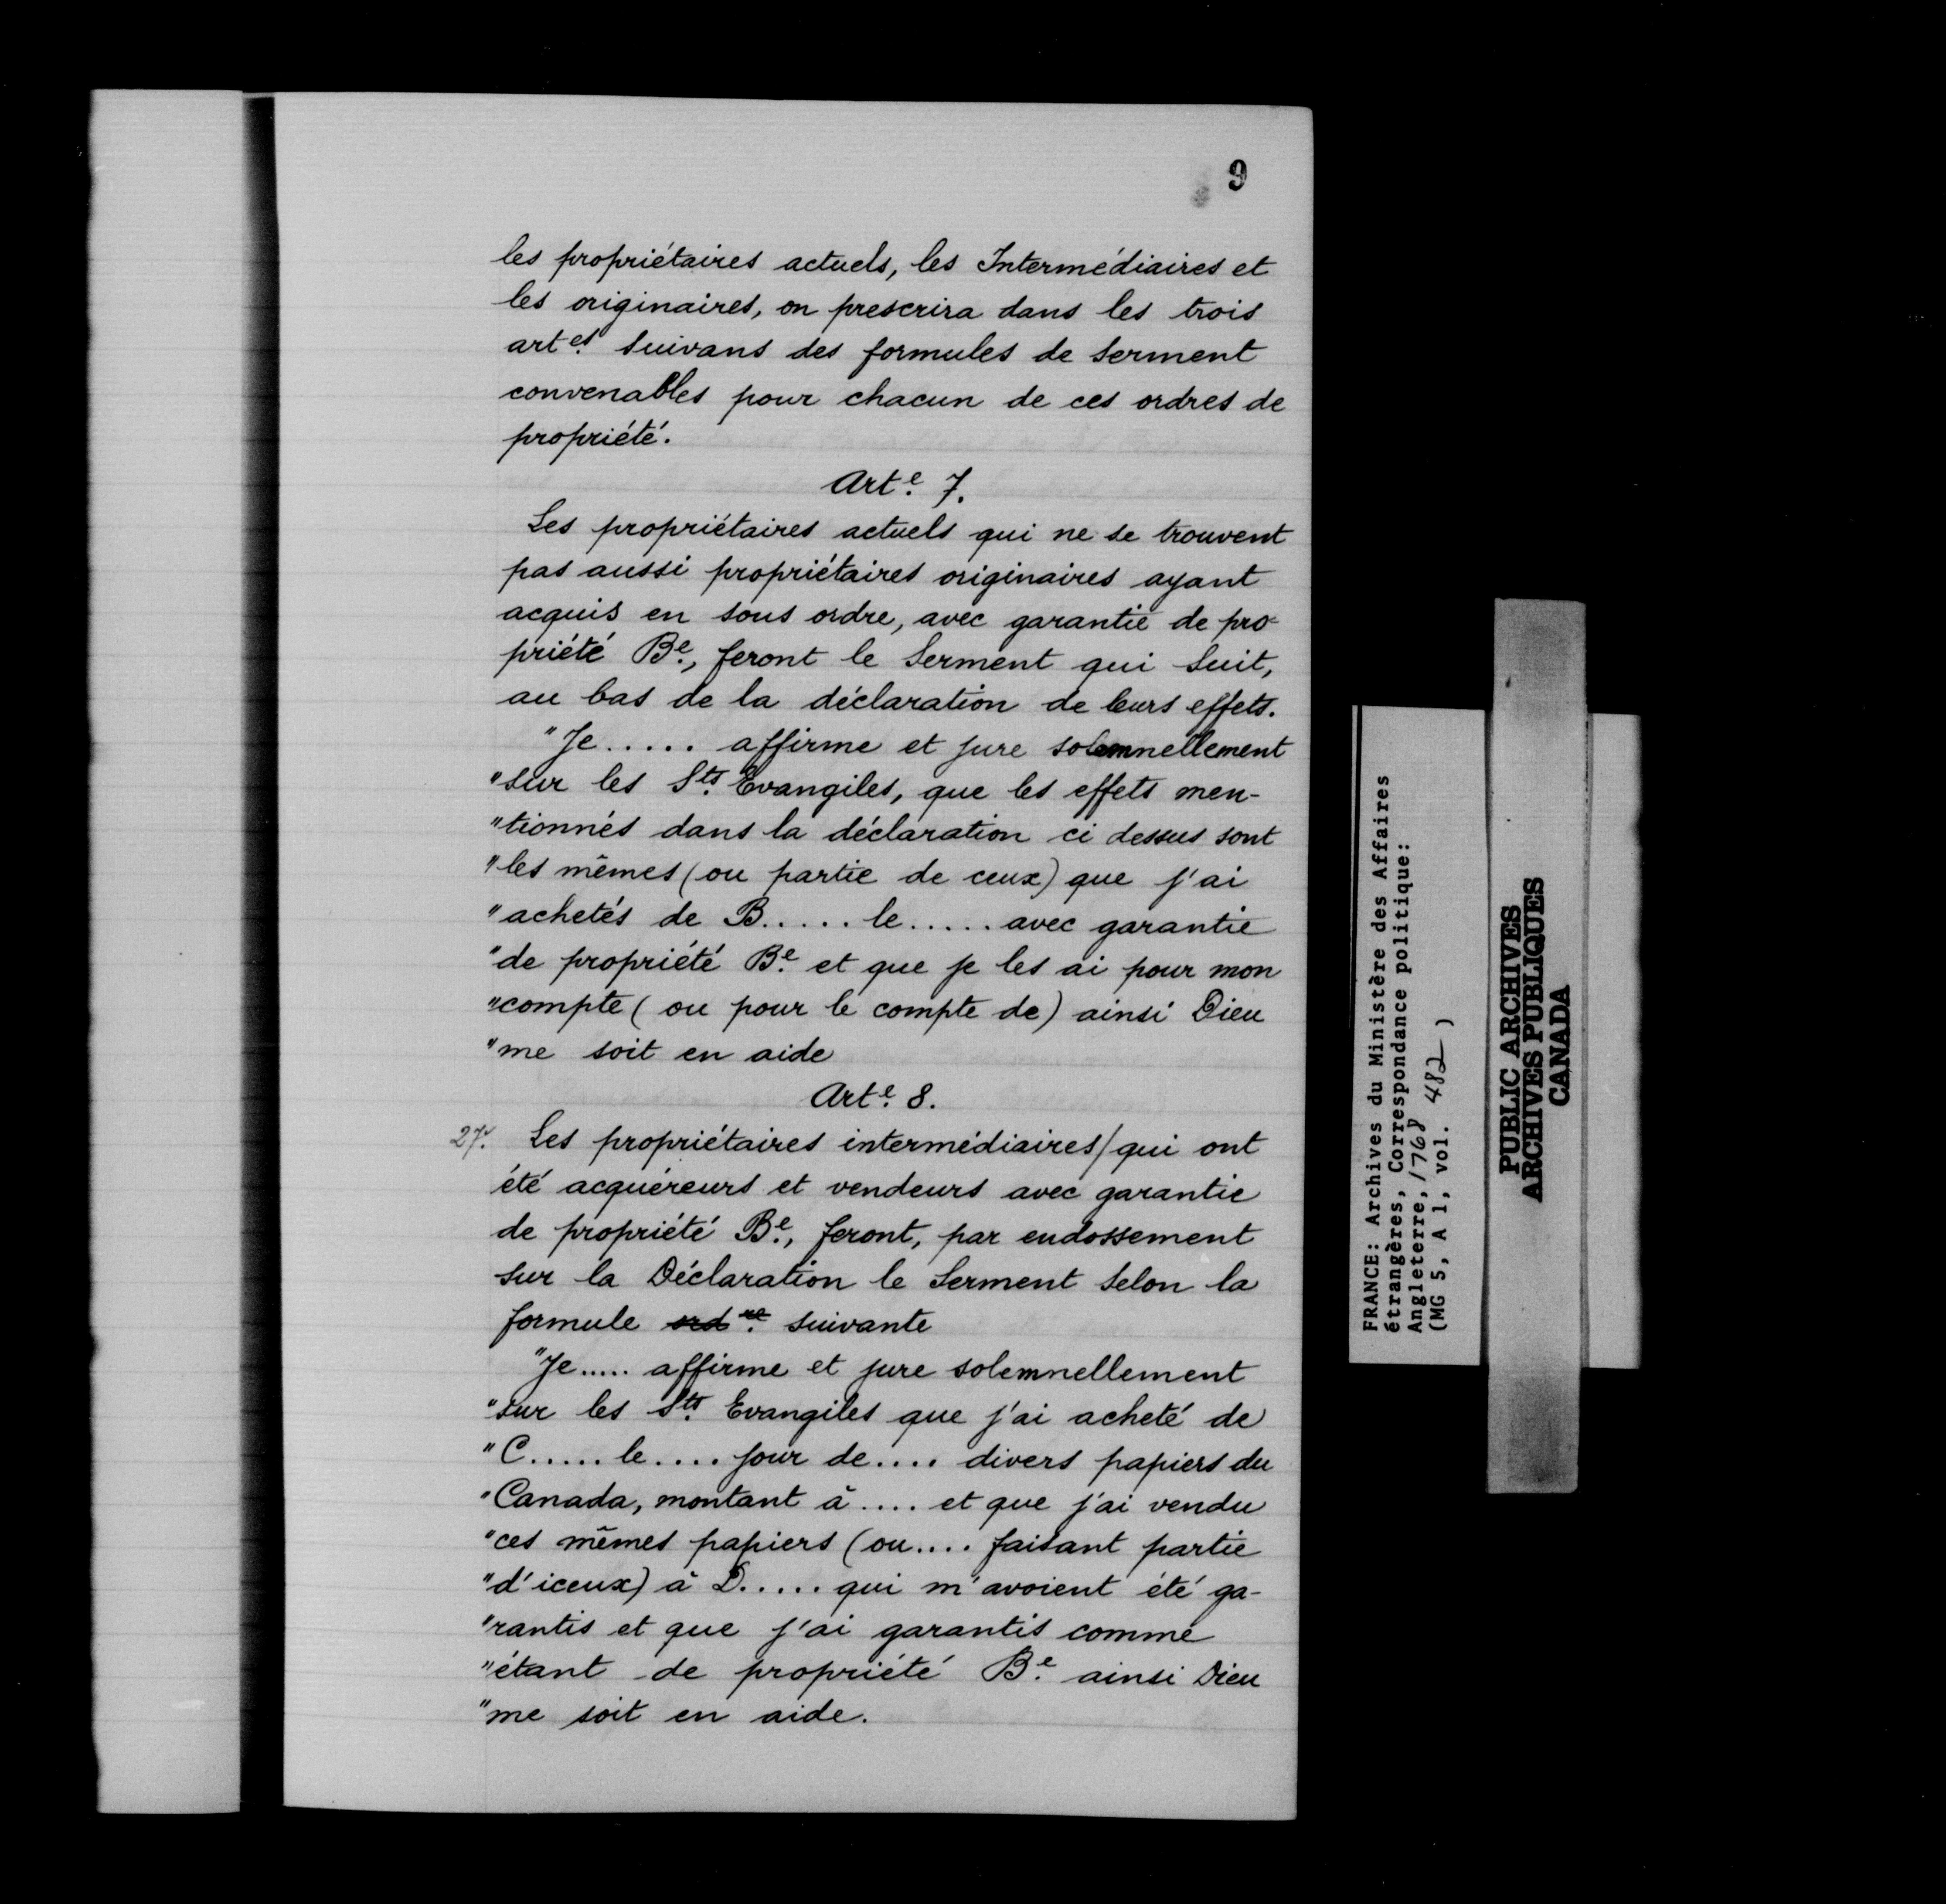 9
les propriétaires actuels, les Intermédiaires et
les originaires, on prescrira dans les trois
art.es suivans des formules de serment
convenables pour chacun de ces ordres de
propriété.
Art.e 7.
Les propriétaires actuels qui ne se trouvent
pas aussi propriétaires originaires ayant
acquis en sous ordre, avec garantie de pro-
priété B.e, feront le Serment qui suit,
au bas de la déclaration de leurs effets.
"Je..... affirme et jure solemnellement
"sur les S.ts Evangiles, que les effets men-
"tionnés dans la déclaration ci dessus sont
"les mêmes (ou partie de ceux) que j'ai
"achetés de B..... le..... avec garantie
"de propriété B.e et que je les ai pour mon
"compte (ou pour le compte de) ainsi Dieu
"me soit en aide
Art.e 8.
27.v Les propriétaires intermédiaires/qui ont
été acquéreurs et vendeurs avec garantie
de propriété B.e, feront, par endossement
sur la Déclaration le Serment selon la
formule suivante
"Je..... affirme et jure solemnellement
"sur les S.ts Evangiles que j'ai acheté de
"C..... le.... jour de.... divers papiers du
"Canada, montant à .... et que j'ai vendu
"ces mêmes papiers (ou.... faisant partie
"d'iceux) à D..... qui m'avoient été ga-
"rantis et que j'ai garantis comme
"étant de propriété B.e ainsi Dieu
"me soit en aide.
FRANCE: Archives du Ministère des Affaires
étrangères, Correspondance politique:
Angleterre, 1768
(MG 5, A 1, vol. 482)
PUBLIC ARCHIVES
ARCHIVES PUBLIQUES
CANADA